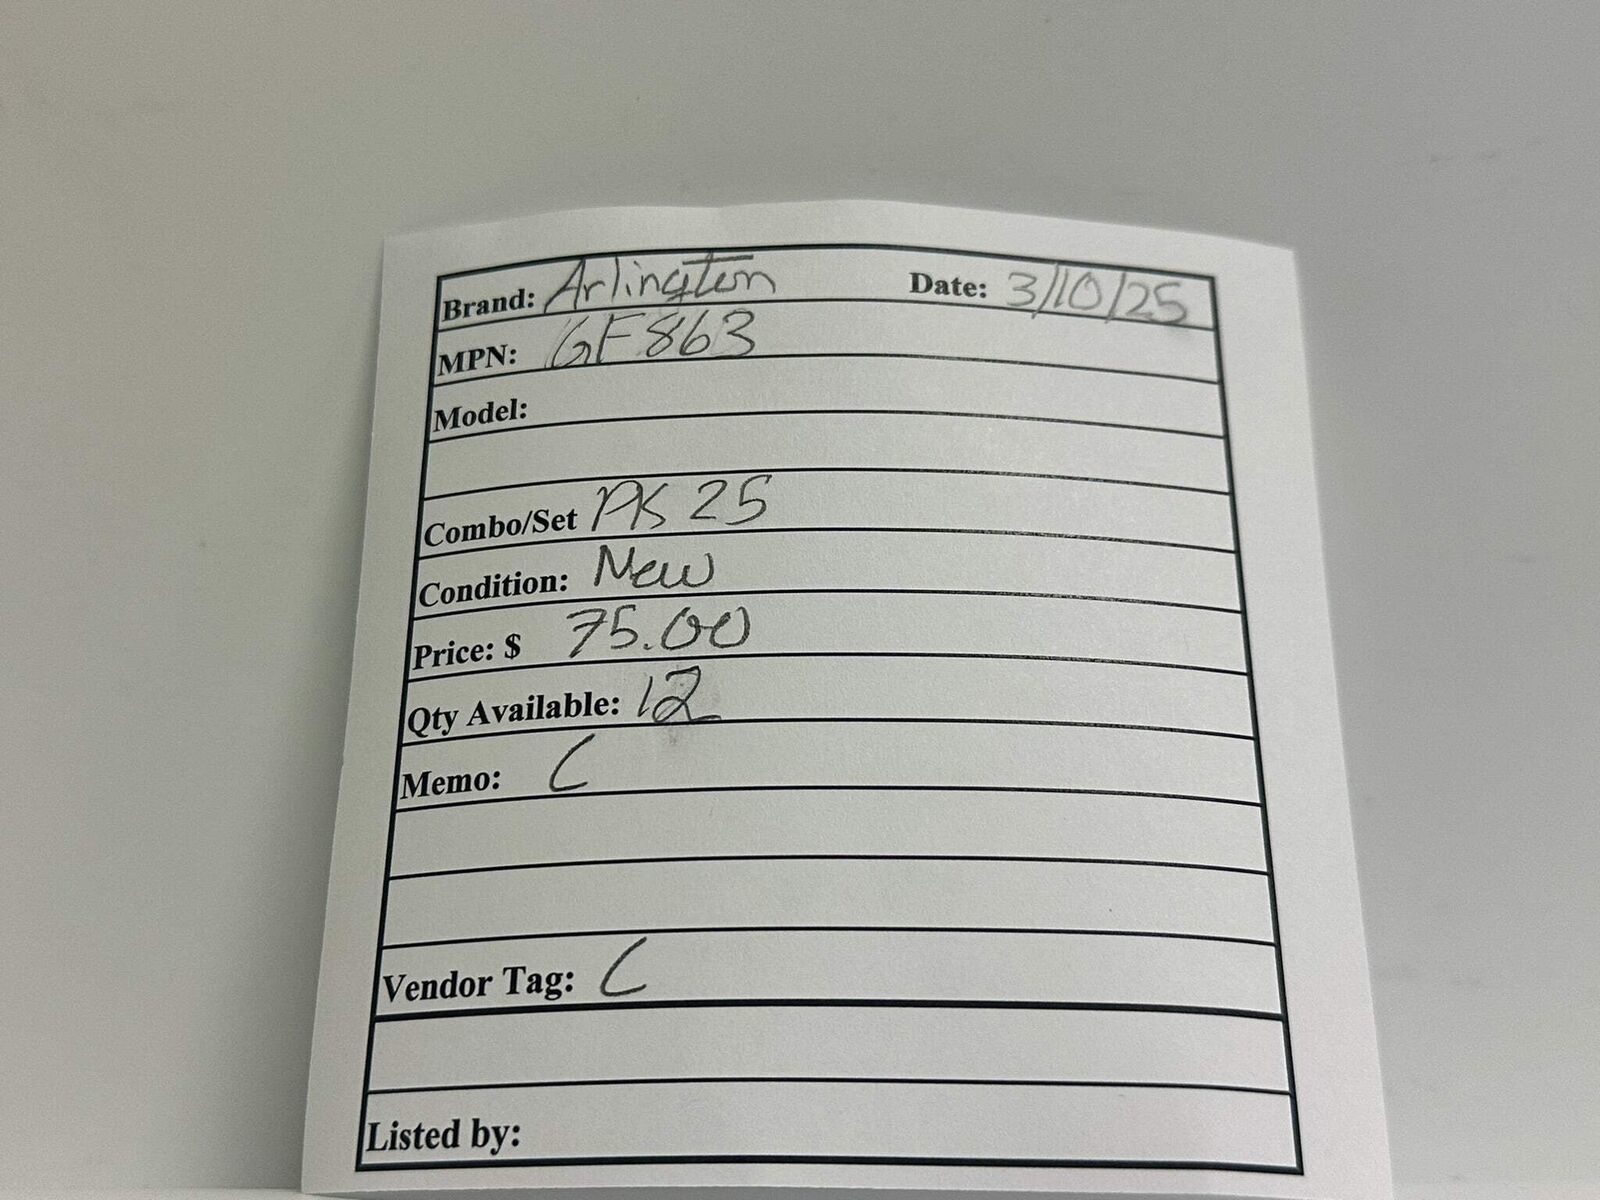 Brand: Arlington Date: 3/10/25
MPN: GF863
Model:
Combo/Set PK 25
Condition: New
Price: $ 75.00
Qty Available: 12
Memo: C
Vendor Tag: C
Listed by: